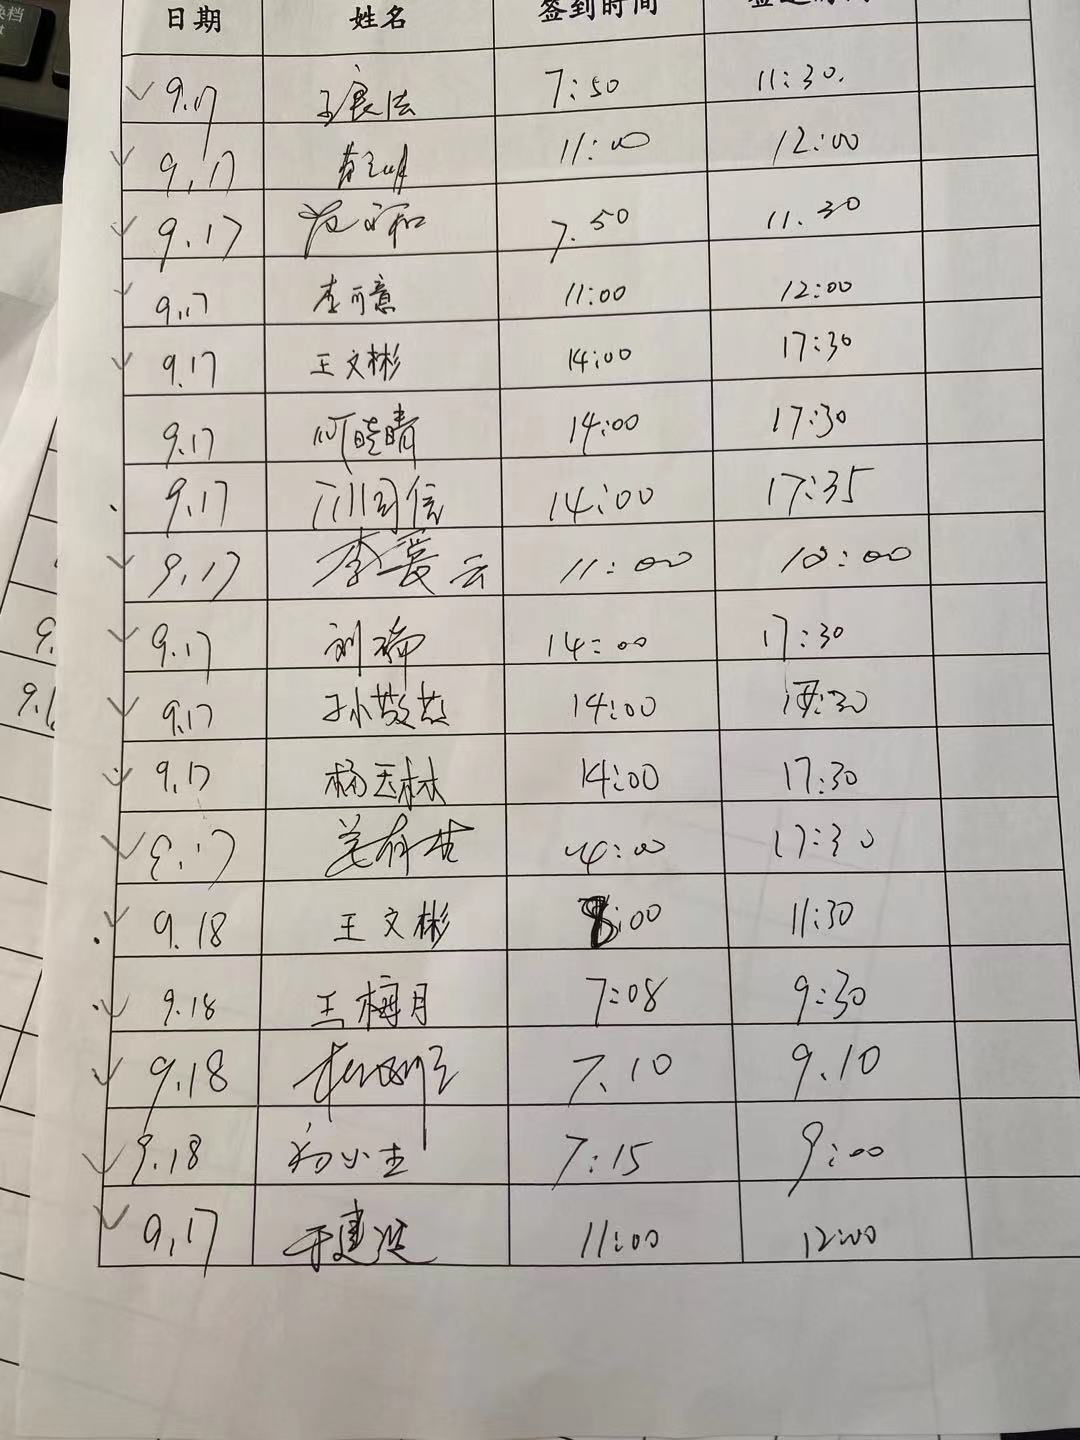 换档
日期 姓名 签到时间 签退时间
9.17 7:50 11:30.
9.17 11:00 12:00
9.17 7.50 11.30
9.17 李可意 11:00 12:00
9.17 王文彬 14:00 17:30
9.17 何晓晴 14:00 17:30
9.17 14:00 17:35
9.17 李爱云 11:00 18:00
9.17 14:00 17:30
9.17 14:00 17:30
9.17 杨玉林 14:00 17:30
9.17 姜有世 14:00 17:30
9.18 王文彬 8:00 11:30
9.18 王梅月 7:08 9:30
9.18 7.10 9.10
9.18 7:15 9:00
9.17 于建 11:00 12:00